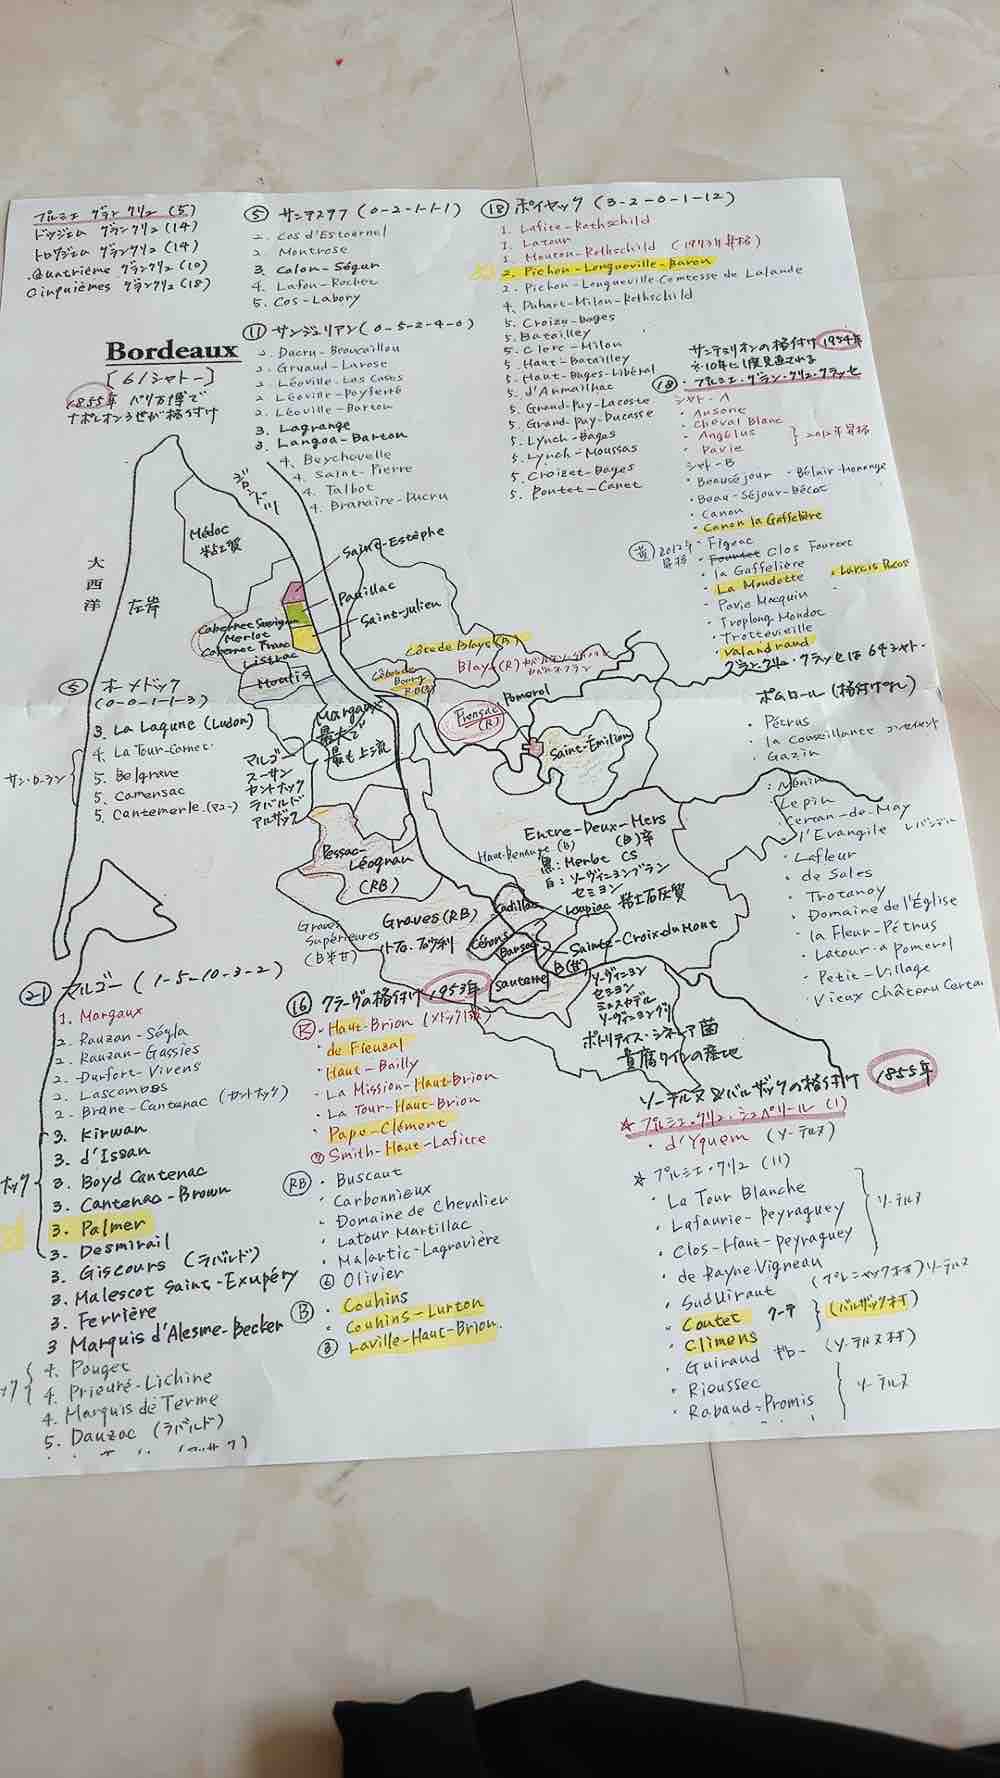 プルミエ グラン クリュ (5)
ドゥジェム グランクリュ (14)
トロワジェム グランクリュ (14)
Quatrième グランクリュ (10)
Cinquièmes グランクリュ (18)
Bordeaux
[61シャトー]
1855年 パリ万博で
ナポレオン3世が格付け
⑤ サンテステフ (0-2-1-1-1)
2. Cos d'Estournel
2. Montrose
3. Calon-Ségur
4. Lafon-Rochet
5. Cos-Labory
⑪ サンジュリアン (0-5-2-4-0)
2. Ducru-Beaucaillou
2. Gruaud-Larose
2. Léoville-Las Cases
2. Léoville-Poyferré
2. Léoville-Barton
3. Lagrange
3. Langoa-Barton
4. Beychevelle
4. Saint-Pierre
4. Talbot
4. Branaire-Ducru
⑱ ポイヤック (3-2-0-1-12)
1. Lafite-Rothschild
1. Latour
1. Mouton-Rothschild (1973年昇格)
2. Pichon-Longueville-Baron
2. Pichon-Longueville Comtesse de Lalande
4. Duhart-Milon-Rothschild
5. Croizu-Bages
5. Batailley
5. Clerc-Milon
5. Haut-Batailley
5. Haut-Bages-Libéral
5. d'Armailhac
5. Grand-Puy-Lacoste
5. Grand-Puy-Ducasse
5. Lynch-Bages
5. Lynch-Moussas
5. Croizet-Bages
5. Pontet-Canet
サンテミリオンの格付け 1954年
※10年に1度見直される
⑱ ・プルミエ・グラン・クリュ・クラッセ
シャトーA
・Ausone
・Cheval Blanc
・Angélus
・Pavie
2012年昇格
シャトーB
・Beauséjour ・Bélair-Monange
・Beau-Séjour-Bécot
・Canon
・Canon la Gaffelière
黄 2012年昇格
・Figeac
・Fourtet Clos Fourtet
・la Gaffelière
・La Mondotte ・Larcis Ducas
・Pavie Macquin
・Troplong Mondot
・Trottevieille
・Valandraud
グラン・クリュ・クラッセは64シャトー
ポムロール (格付けなし)
・Pétrus
・la Conseillante コンセイヤント
・Gazin
・Nénin
・Lepin
・Certan-de-May
・l'Evangile レバンジル
・Lafleur
・de Sales
・Trotanoy
・Domaine de l'Église
・la Fleur-Pétrus
・Latour a Pomerol
・Petit-Village
・Vieux Château Certan
大西洋
左岸
ジロンド川
Médoc
粘土質
Saint-Estèphe
Pauillac
Saint-Julien
Cabernet Sauvignon
Merlot
Cabernet Franc
Listrac
Moulis
Côte de Blaye (B)
Blaye (R)
Côtes de Bourg
R・B
Margaux
最大で
最も上流
マルゴー
スーサン
カントナック
ラバルド
アルザック
Fronsac
(R)
Pomerol
Saint-Émilion
⑤ オーメドック
(0-0-1-1-3)
3. La Lagune (Ludon)
4. La Tour-Carnet
5. Belgrave
5. Camensac
5. Cantemerle (マコー)
サン・ローラン
Pessac-
Léognan
(RB)
Graves
Supérieures
(B半甘)
Graves (RB)
Entre-Deux-Mers
(B)辛
Haut-Benauge (B)
黒: Merlot CS
白: ソーヴィニヨンブラン
セミヨン
Cadillac
Loupiac
粘土石灰質
Cérons
Barsac
Sainte-Croix du Mont
Sauternes
B(甘)
ソーヴィニヨン
セミヨン
ミュスカデル
ソーヴィニヨングリ
ボトリティス・シネレア菌
貴腐ワインの産地
㉑ マルゴー (1-5-10-3-2)
1. Margaux
2. Rauzan-Ségla
2. Rauzan-Gassies
2. Durfort-Vivens
2. Lascombes
2. Brane-Cantenac (カントナック)
3. Kirwan
3. d'Issan
3. Boyd Cantenac
3. Cantenac-Brown
3. Palmer
3. Desmirail
3. Giscours (ラバルド)
3. Malescot Saint-Exupéry
3. Ferrière
3 Marquis d'Alesme-Becker
4. Pouget
4. Prieuré-Lichine
4. Marquis de Terme
5. Dauzac (ラバルド)
⑯ グラーヴの格付け 1953年
R ・Haut-Brion (メドック1級)
・de Fieuzal
・Haut-Bailly
・La Mission-Haut-Brion
・La Tour-Haut-Brion
・Pape-Clément
⑦ Smith-Haut-Lafitte
RB ・Buscaut
・Carbonnieux
・Domaine de Chevalier
・Latour Martillac
・Malartic-Lagravière
⑥ Olivier
B ・Couhins
・Couhins-Lurton
③ Laville-Haut-Brion.
ソーテルヌ&バルザックの格付け 1855年
☆プルミエ・クリュ・シュペリュール (1)
・d'Yquem (ソーテルヌ)
☆プルミエ・クリュ (11)
・La Tour Blanche
・Lafaurie-Peyraguey
・Clos-Haut-Peyraguey
・de Rayne Vigneau
ソーテルヌ
・Suduiraut (プレニャック村) ソーテルヌ
・Coutet クーテ
・Climens
(バルザック村)
・Guiraud ギロー (ソーテルヌ村)
・Rieussec
・Rabaud-Promis
ソーテルヌ